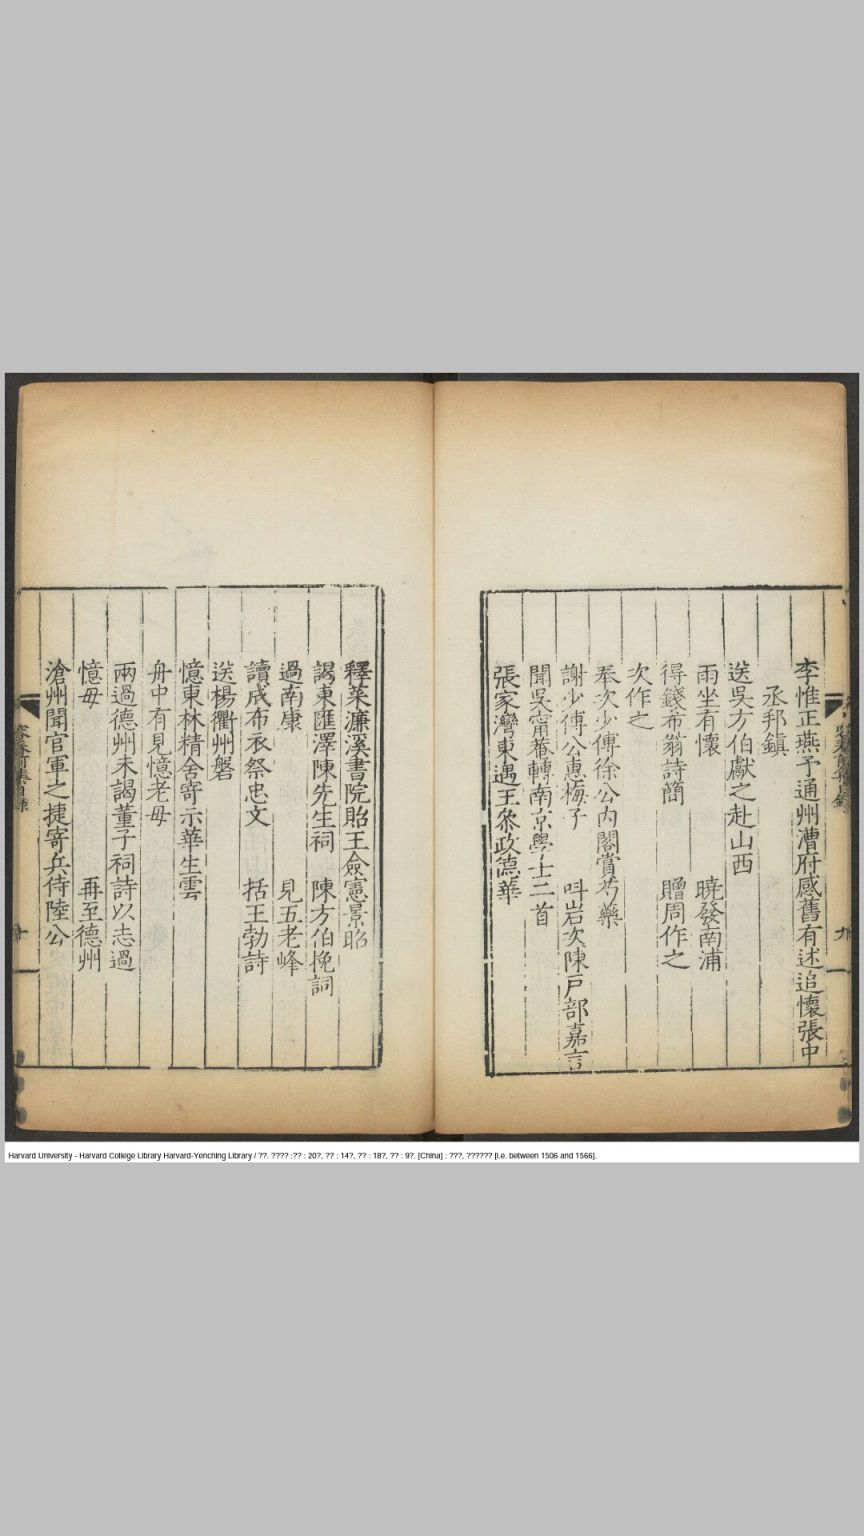 李惟正燕予通州漕府感舊有述追懷張中
丞邦鎮
送吳方伯獻之赴山西
雨坐有懷 曉發南浦
得錢希翁詩簡 贈周作之
次作之
奉次少傅徐公內閣賞芍藥
謝少傅公惠梅子 呌岩次陳戶部嘉言
聞吳甯菴轉南京學士二首
張家灣東遇王叅政德華
釋菜濂溪書院貽王僉憲景昭
謁東匯澤陳先生祠 陳方伯挽詞
過南康 見五老峰
讀成布衣祭忠文 括王勃詩
送楊衢州磐
憶東林精舍寄示華生雲
舟中有見憶老母
兩過德州未謁董子祠詩以志過
憶母 再至德州
滄州聞官軍之捷寄兵侍陸公
Harvard University - Harvard College Library Harvard-Yenching Library / ??. ???? :?? : 20?, ?? : 14?, ?? : 18?, ?? : 9?. [China] : ???, ?????? [i.e. between 1506 and 1566].